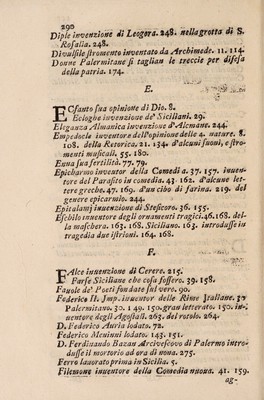 290
Diple invenzione di Leogora. 248. nella grotta di S.
Rosalia. 248.
Divulsile stromento inventato da Archimede. 11. 114.
Donne Palermitane si taglian le treccie per difesa
della patria. 174.
E.
ECfanto sua opinione di Dio. 8.
Ecloghe invenzione de' Siciliani. 29.
Eleganza Almanica invenzione d'Alcmane. 244.
Empedocle inventore dell'opinione delle 4. nature. 8.
108. della Retorica. 21. 134. d'alcuni suoni, e stro-
menti musicali. 55. 180.
Enna sua fertilità. 77. 79.
Epicharmo inventor della Comedia. 37. 157. inven-
tore del Parasito in comedia. 43. 162. d'alcune let-
tere greche. 47. 169. d'un cibo di farina. 219. del
genere epicarmio. 244.
Epitalamj invenzione di Stesicoro. 36. 155.
Eschilo inventore degli ornamenti tragici. 46. 168. del-
la maschera. 163. 168. Siciliano. 163. introdusse in
tragedia due istrioni. 164. 168.
F.
FAlce invenzione di Cerere. 215.
Farse Siciliane che cosa fossero. 39. 158.
Favole de' Poeti fondate sul vero. 90.
Federico II. Imp. inventor delle Rime Italiane. 30
Palermitano. 30. 149. 150. gran letterato. 150. in-
ventore degli Agostali. 263. del rotolo. 264.
D. Federico Auria lodato. 72.
Federico Meninni lodato. 143. 151.
D. Ferdinando Bazan Arcivescovo di Palermo intro-
dusse il mortorio ad ora di nona. 275.
Ferro lavorato prima in Sicilia. 5.
Filemone inventore della Comedia nuova. 41. 159.
ag-